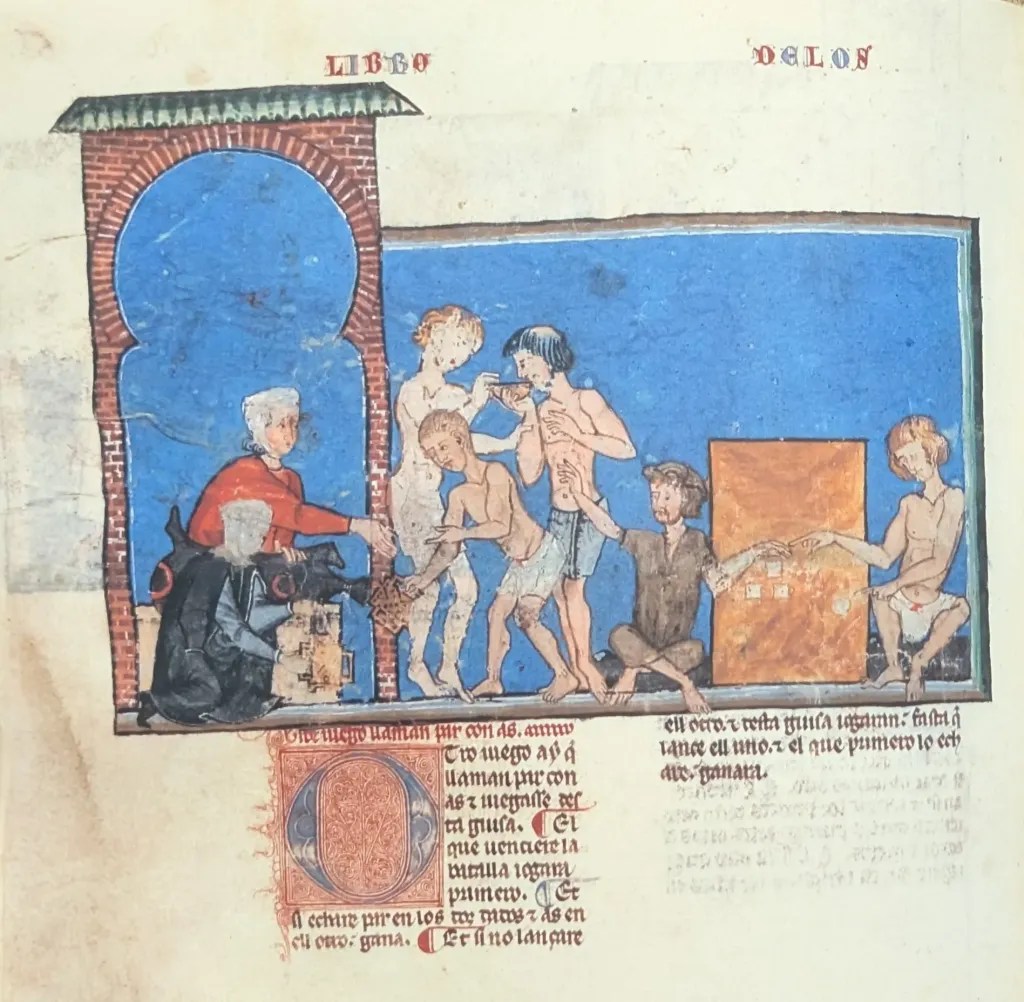 LIBRO DELOS
Otro iuego llaman par con as.
Otro iuego ay q̄
llaman par con
as ⁊ iuegasse des
ta guisa. ¶ El
que uenciere la
batalla iogara
primero. ¶ Et
si echare par en los dos dados ⁊ as en
ell otro. gana. ¶ Et si no lançare
ell otro. ⁊ desta guisa iogaran. fasta q̄
lance ell uno. ⁊ el que primero lo ech
are. ganara.